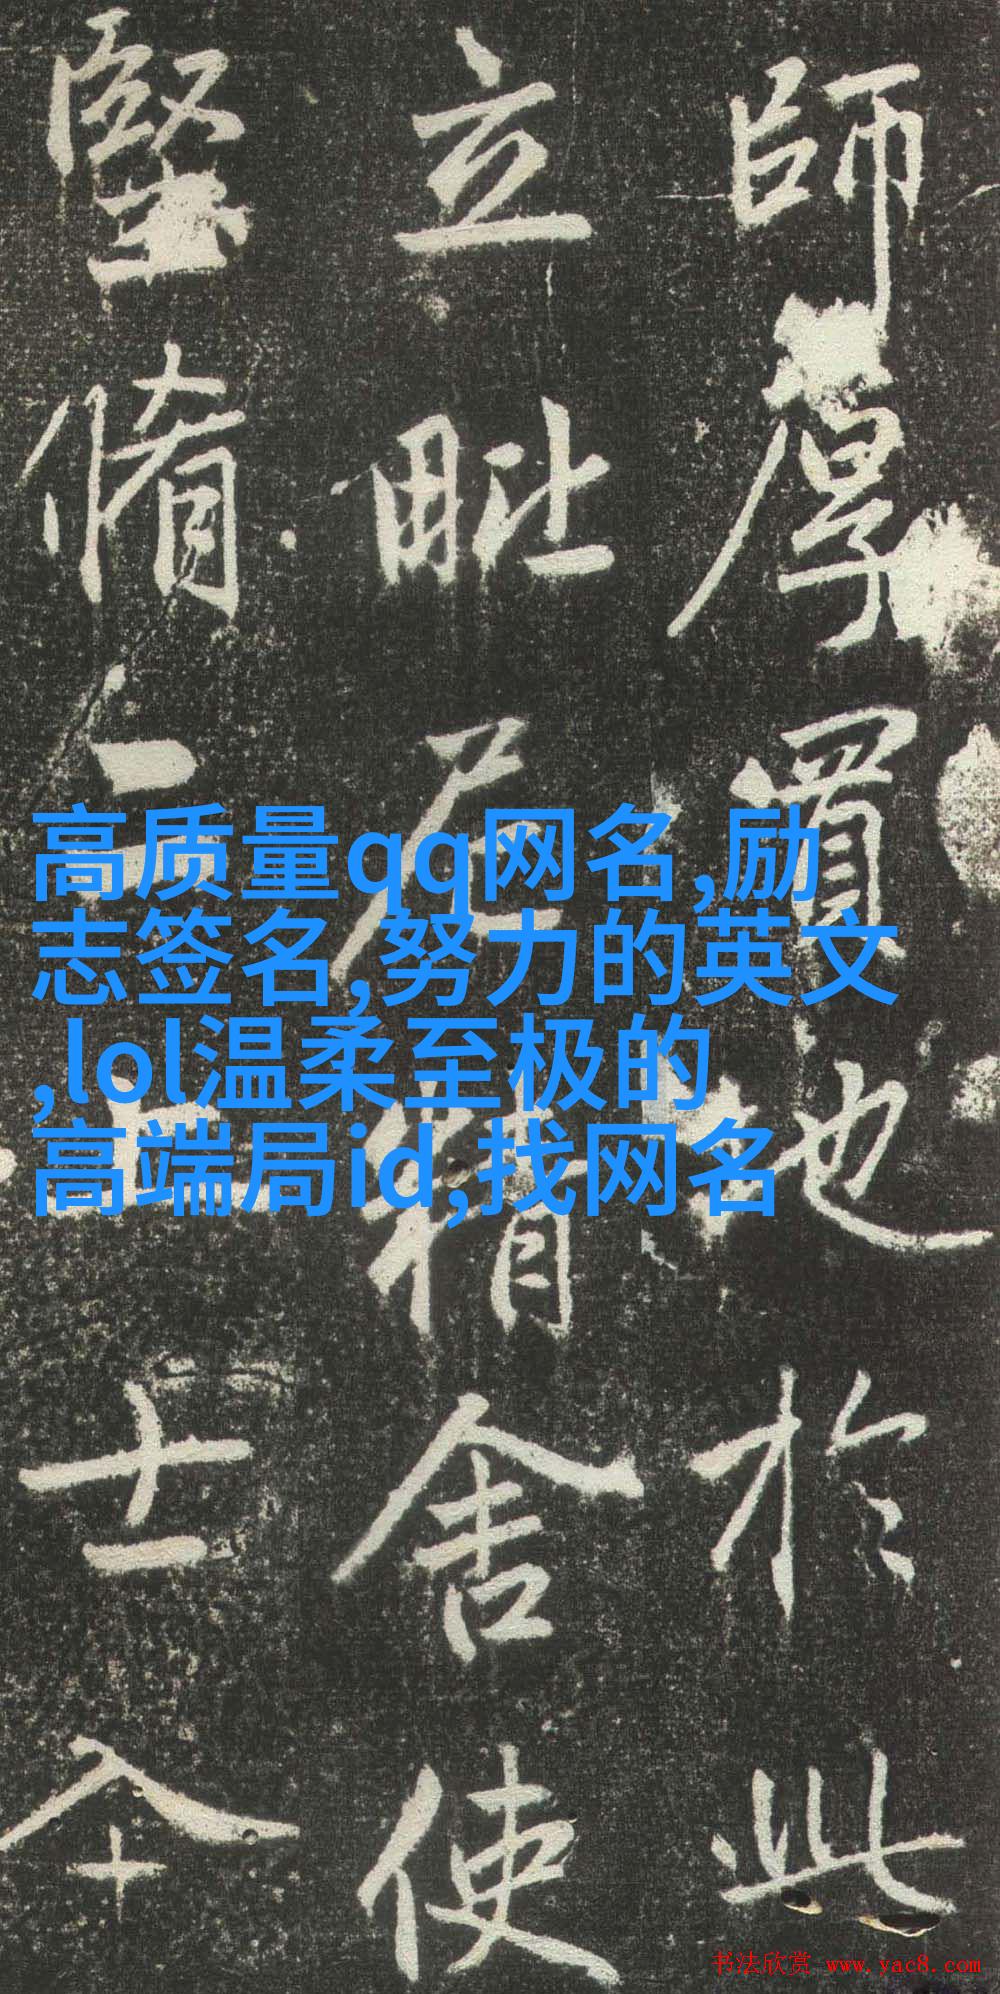 高质量qq网名,励
志签名,努力的英文
,lol温柔至极的
高端局id,找网名
師厚買也於此
立毗尼精舍使
堅脩
書法欣赏 www.yac8.com